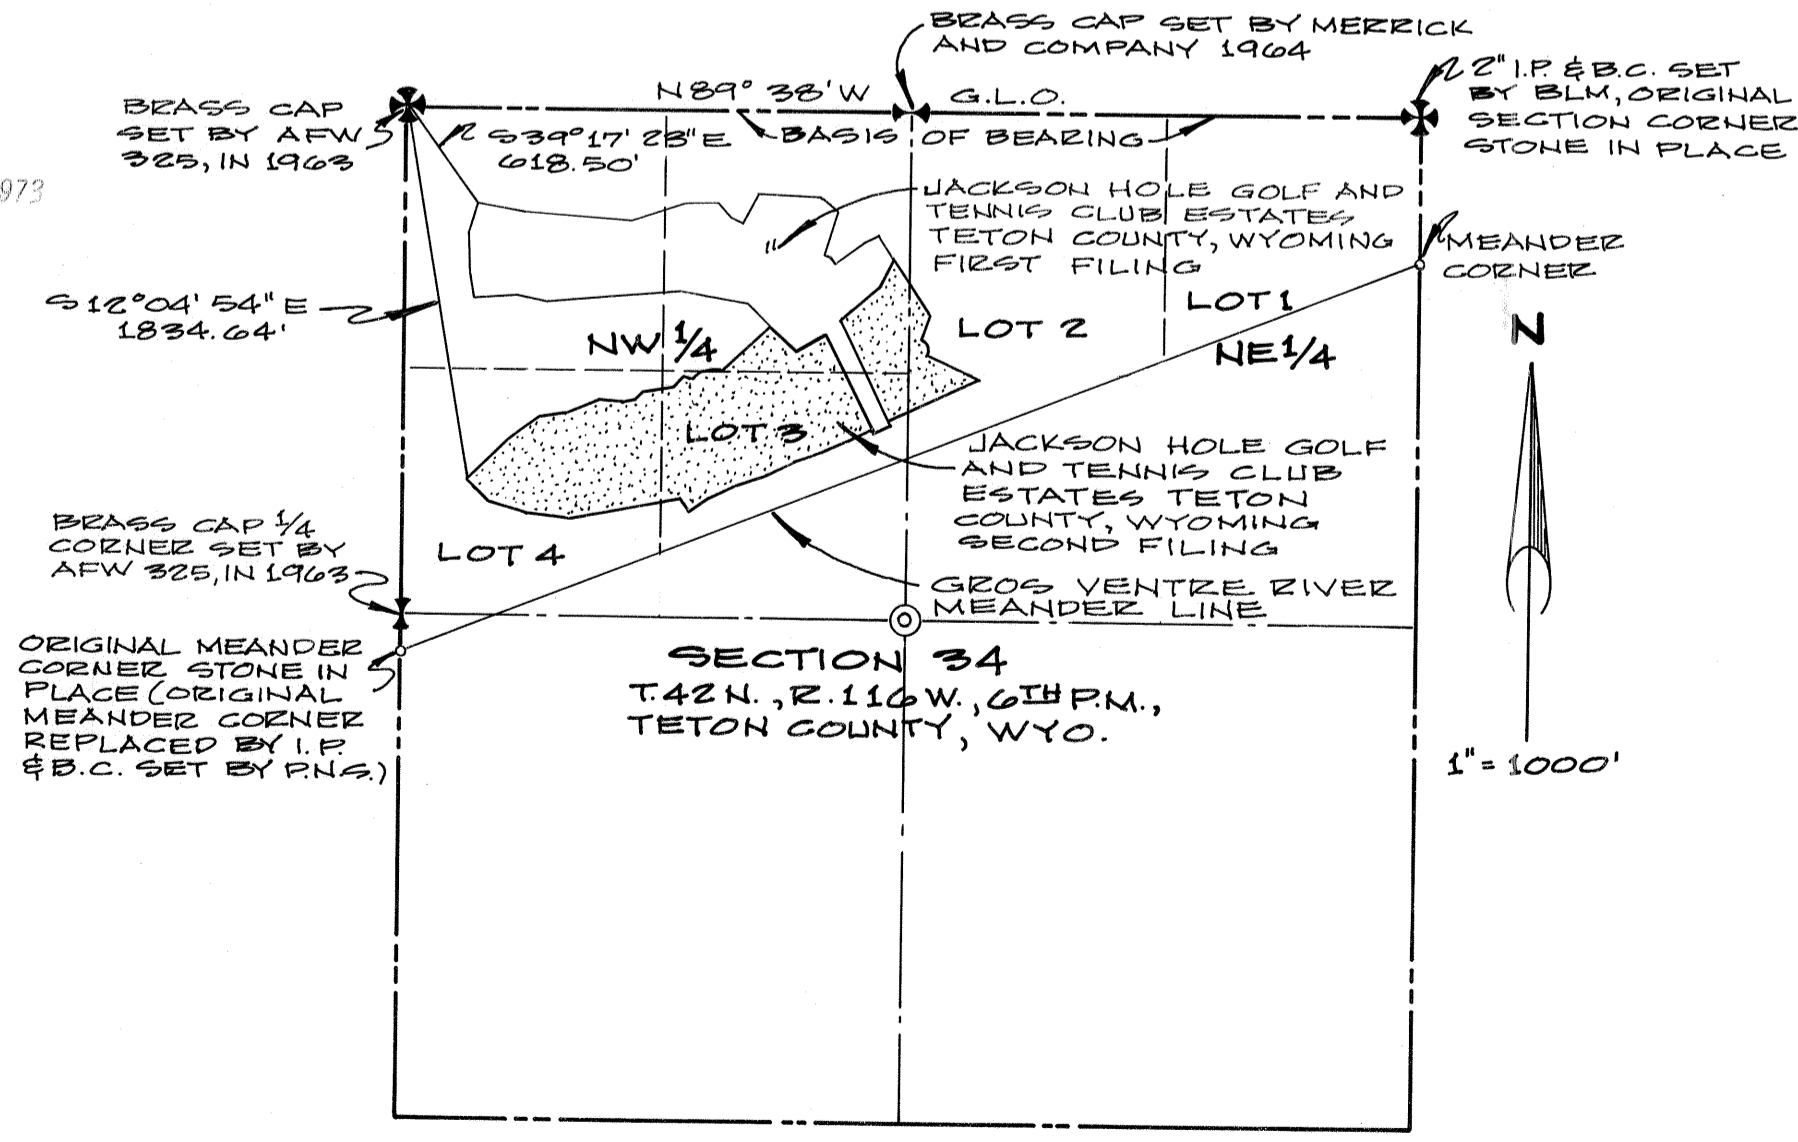 BRASS CAP SET BY MERRICK
AND COMPANY 1964
2" I.P. & B.C. SET
BY BLM, ORIGINAL
SECTION CORNER
STONE IN PLACE
BRASS CAP
SET BY AFW
325, IN 1963
N 89° 38' W
G.L.O.
S 39° 17' 23" E
618.50'
BASIS OF BEARING
973
JACKSON HOLE GOLF AND
TENNIS CLUB ESTATES
TETON COUNTY, WYOMING
FIRST FILING
MEANDER
CORNER
S 12° 04' 54" E
1834.64'
LOT 1
LOT 2
NW 1/4
NE 1/4
N
LOT 3
JACKSON HOLE GOLF
AND TENNIS CLUB
ESTATES TETON
COUNTY, WYOMING
SECOND FILING
BRASS CAP 1/4
CORNER SET BY
AFW 325, IN 1963
LOT 4
GROS VENTRE RIVER
MEANDER LINE
ORIGINAL MEANDER
CORNER STONE IN
PLACE (ORIGINAL
MEANDER CORNER
REPLACED BY I.P.
& B.C. SET BY P.N.S.)
SECTION 34
T. 42 N., R. 116 W., 6TH P.M.,
TETON COUNTY, WYO.
1" = 1000'